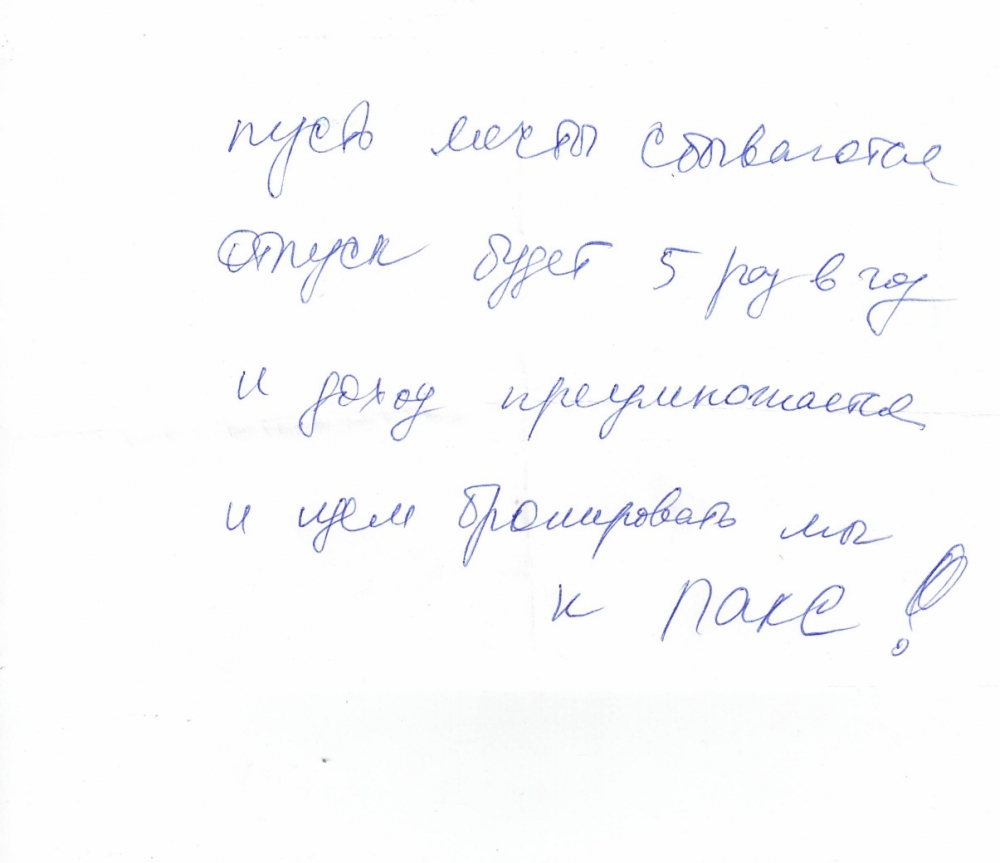 пусть мечты сбываются
Отпуск будет 5 раз в год
и доход преумножается
и идем бронировать мы
к ПАКС!